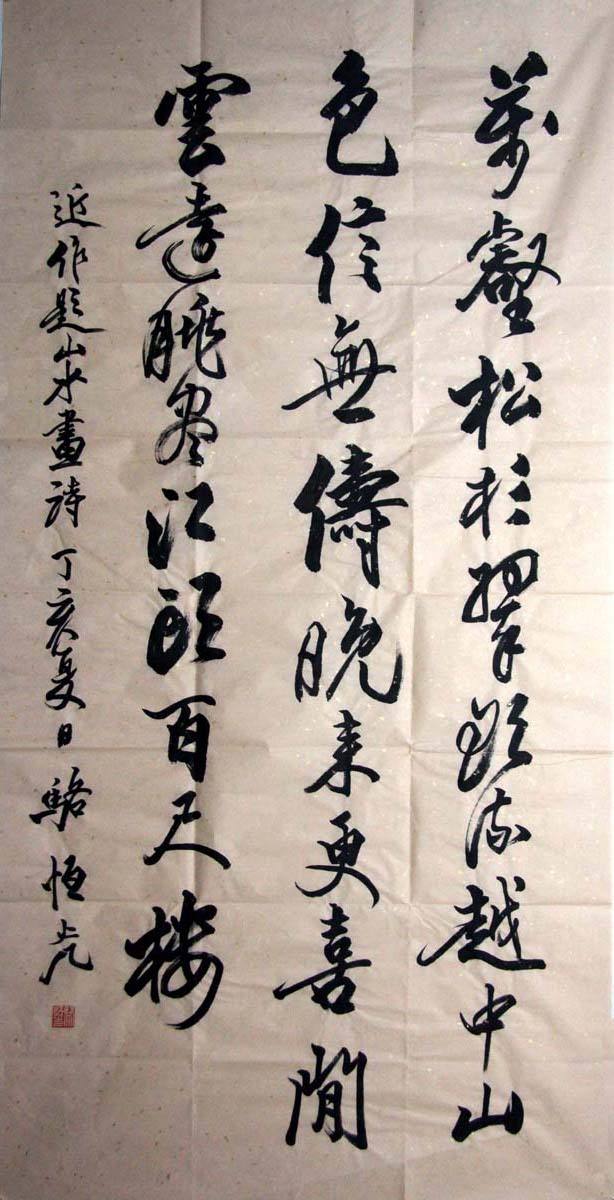 萬壑松杉翠欲流越中山
色信無儔晚来更喜閒
雲遠眺盡江頭百尺楼
近作題山水畫詩丁亥夏日駱恒光